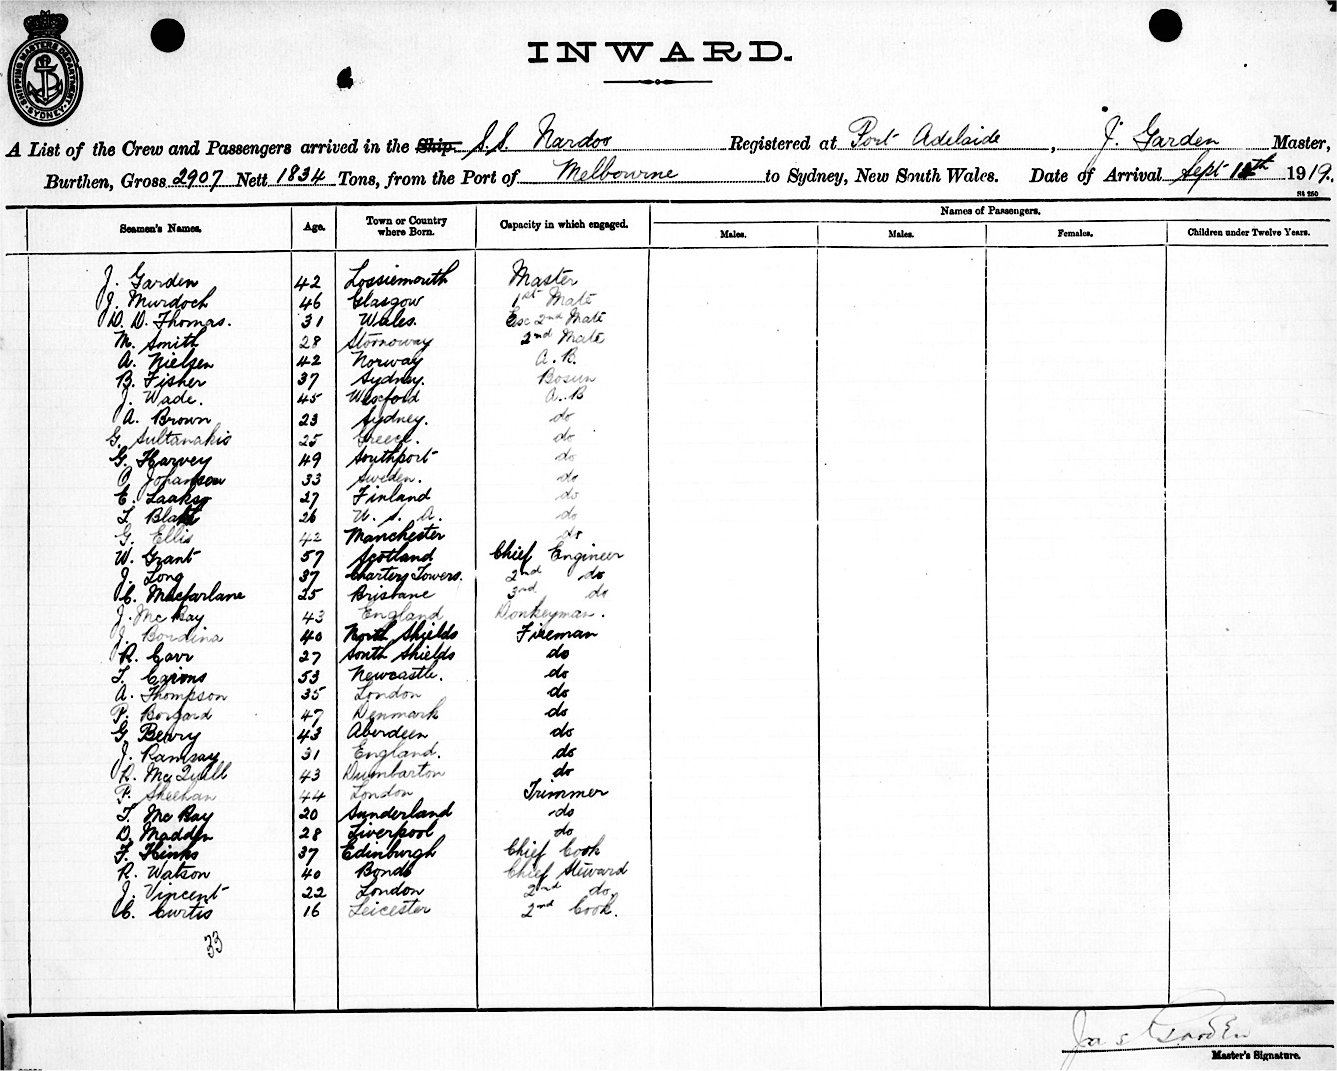 SHIPPING MASTERS DEPARTMENT SYDNEY
INWARD.
A List of the Crew and Passengers arrived in the Ship S.S. Nardoo Registered at Port Adelaide, J. Garden Master,
Burthen, Gross 2907 Nett 1834 Tons, from the Port of Melbourne to Sydney, New South Wales. Date of Arrival Sept 1919.
Seamen's Names. Age. Town or Country where Born. Capacity in which engaged. Names of Passengers.
Males. Males. Females. Children under Twelve Years.
J. Garden 42 Lossiemouth Master
J. Murdoch 46 Glasgow 1st Mate
D. D. Thomas. 31 Wales. 2nd Mate
M. Smith 28 Stornoway 2nd Mate
A. Nielsen 42 Norway A. B.
B. Fisher 37 Sydney. Bosun
J. Wade. 45 Wexford A. B
A. Brown 23 Sydney. do
G. Sultanakis 25 Greece. do
G. Harvey 49 Southport do
Johanson 33 Sweden. do
E. Laakso 27 Finland do
26 U. S. A. do
G. Ellis 42 Manchester do
W. Grant 57 Scotland Chief Engineer
J. Long 37 Charters Towers. 2nd do
C. Macfarlane 25 Brisbane 3rd do
J. Mc Bay 43 England Donkeyman.
J. Bordina 40 North Shields Fireman
R. Carr 27 South Shields do
T. 53 Newcastle. do
A. Thompson 35 London do
P. Borgard 47 Denmark do
G. Berry 43 Aberdeen do
J. Ramsay 31 England. do
R. 43 Dumbarton do
P. Sheehan 44 London Trimmer
T. Mc Bay 20 Sunderland do
D. Madden 28 Liverpool do
F. Hinks 37 Edinburgh Chief Cook
R. Watson 40 Chief Steward
J. Vincent 22 London 2nd do
C. Curtis 16 Leicester 2nd Cook.
33
Jas Garden
Master's Signature.